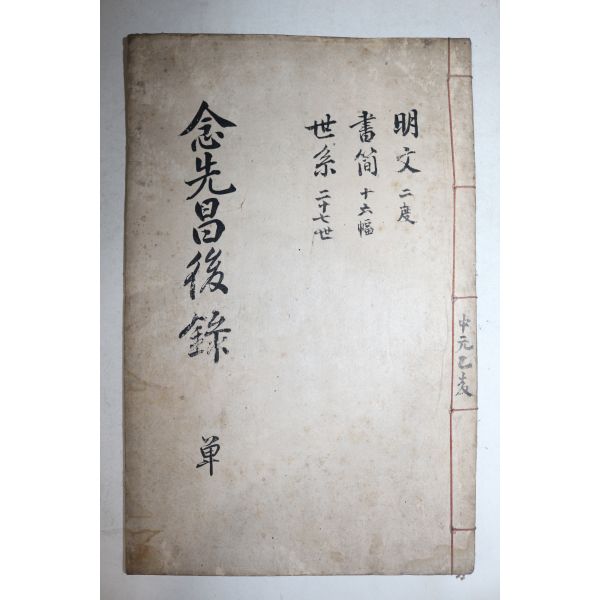 中元乙亥
明文 二度
書简 十六幅
世系 二十七世
念先昌後錄 単